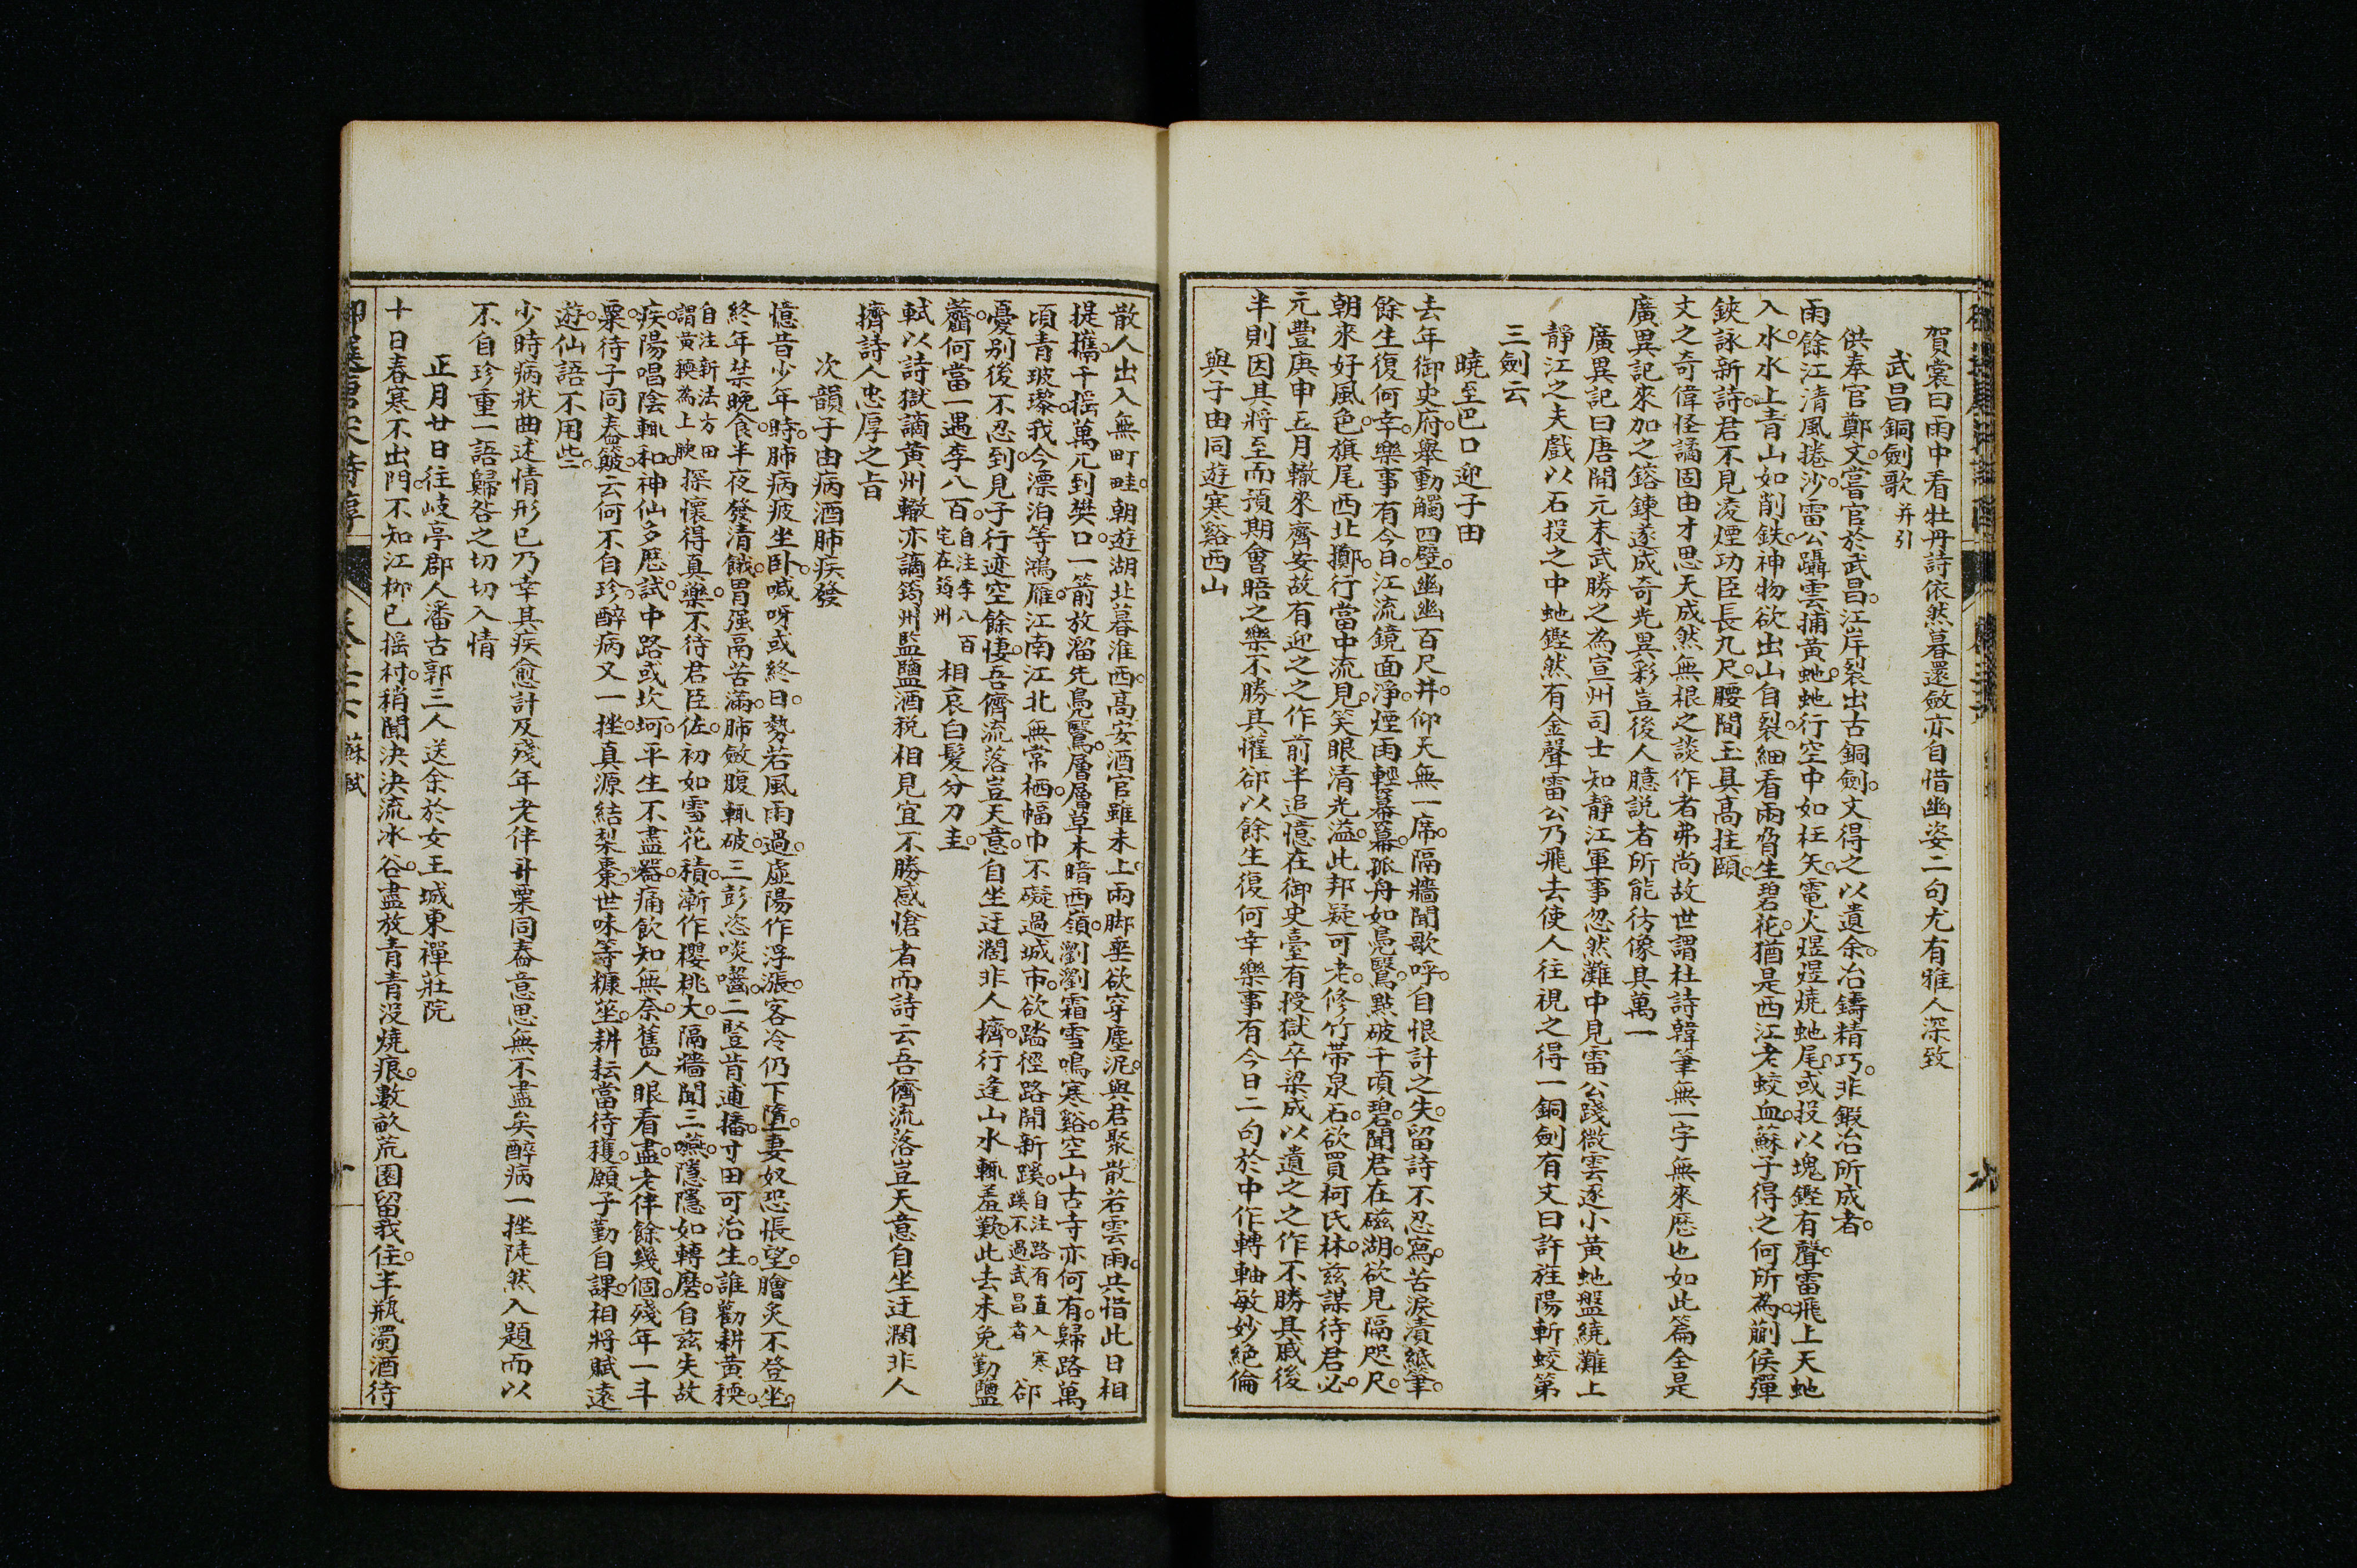 賀裳曰雨中看牡丹詩依然暮還斂亦自惜幽姿二句尤有雅人深致
武昌銅劍歌并引
供奉官鄭文嘗官於武昌江岸裂出古銅劍文得之以遺余冶鑄精巧非鍛冶所成者
雨餘江清風捲沙雷公躡雲捕黃虵虵行空中如枉矢電火煜煜燒虵尾或投以塊鏗有聲雷飛上天虵
入水水上青山如削鉄神物欲出山自裂細看兩脅生碧花猶是西江老蛟血蘇子得之何所為蒯侯彈
鋏詠新詩君不見凌煙功臣長九尺腰間玉具高拄頤
文之奇偉怪譎固由才思天成然無根之談作者弗尚故世謂杜詩韓筆無一字無來歷也如此篇全是
廣異記來加之鎔鍊遂成奇光異彩豈後人臆説者所能彷像其萬一
廣異記曰唐開元末武勝之為宣州司士知靜江軍事忽然灘中見雷公踐微雲逐小黃虵盤繞灘上
靜江之夫戲以石投之中虵鏗然有金聲雷公乃飛去使人往視之得一銅劍有文曰許旌陽斬蛟第
三劍云
曉至巴口迎子由
去年御史府舉動觸四壁幽幽百尺井仰天無一席隔牆聞歌呼自恨計之失留詩不忍寫苦淚漬紙筆
餘生復何幸樂事有今日江流鏡面淨煙雨輕冪冪孤舟如鳧鷖點破千頃碧聞君在磁湖欲見隔咫尺
朝來好風色旗尾西北擲行當中流見笑眼清光溢此邦疑可老修竹帶泉石欲買柯氏林兹謀待君必
元豐庚申五月轍來齊安故有迎之之作前半追憶在御史臺有授獄卒梁成以遺之之作不勝其戚後
半則因其將至而預期會晤之樂不勝其懽郤以餘生復何幸樂事有今日二句於中作轉軸敏妙絕倫
與子由同遊寒谿西山
散人出入無町畦朝遊湖北暮淮西高安酒官雖未上兩脚垂欲穿塵泥與君聚散若雲雨共惜此日相
提攜千摇萬兀到樊口一箭放溜先鳧鷖層層草木暗西嶺瀏瀏霜雪鳴寒谿空山古寺亦何有歸路萬
頃青玻瓈我今漂泊等鴻雁江南江北無常栖幅巾不礙過城市欲踏徑路開新蹊自注路有直入寒蹊不過武昌者郤
憂别後不忍到見子行迹空餘悽吾儕流落豈天意自坐迂濶非人擠行逢山水輒羞歎此去未免勤鹽
虀何當一遇李八百自注李八百宅在筠州相哀白髮分刀圭
軾以詩獄謫黃州轍亦謫筠州監鹽酒税相見宜不勝感愴者而詩云吾儕流落豈天意自坐迂濶非人
擠詩人忠厚之旨
次韻子由病酒肺疾發
憶昔少年時肺病疲坐卧喊呀或終日勢若風雨過虛陽作浮漲客冷仍下墮妻奴恐悵望膾炙不登坐
終年禁晚食半夜發清餓胃强鬲苦滿肺斂腹輒破三彭恣啖齧二豎肯逋播寸田可治生誰勸耕黃穤
自注新法方田謂黃穤為上腴探懷得真藥不待君臣佐初如雪花積漸作櫻桃大隔牆聞三嚥隱隱如轉磨自兹失故
疾陽唱陰輒和神仙多歷試中路或坎坷平生不盡器痛飲知無奈舊人眼看盡老伴餘幾個殘年一斗
粟待子同舂簸云何不自珍醉病又一挫真源結梨棗世味等糠莝耕耘當待穫願子勤自課相將賦遠
遊仙語不用些
少時病狀曲述情形已乃幸其疾愈計及殘年老伴斗粟同舂意思無不盡矣醉病一挫陡然入題而以
不自珍重一語歸咎之切切入情
正月廿日往岐亭郡人潘古郭三人送余於女王城東禪莊院
十日春寒不出門不知江栁已摇村稍聞決決流冰谷盡放青青没燒痕數畝荒園留我住半瓶濁酒待
蘇軾